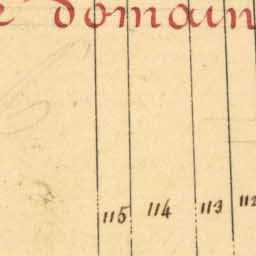 domain
115 114 113 112